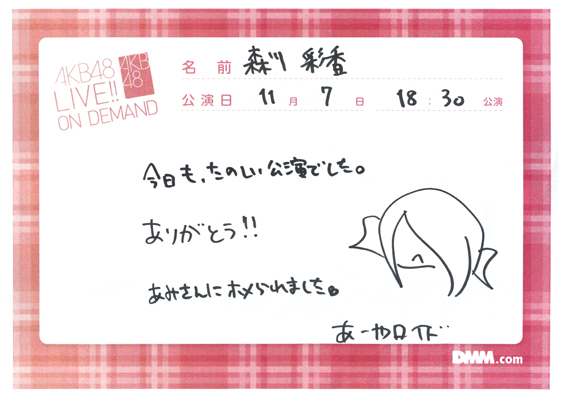 AKB48
LIVE!!
ON DEMAND
AKB
48
名前 森川 彩香
公演日 11月7日 18:30公演
今日も、たのしい公演でした。
ありがとう!!
あみさんにホメられました。
あーやロイド
DMM.com